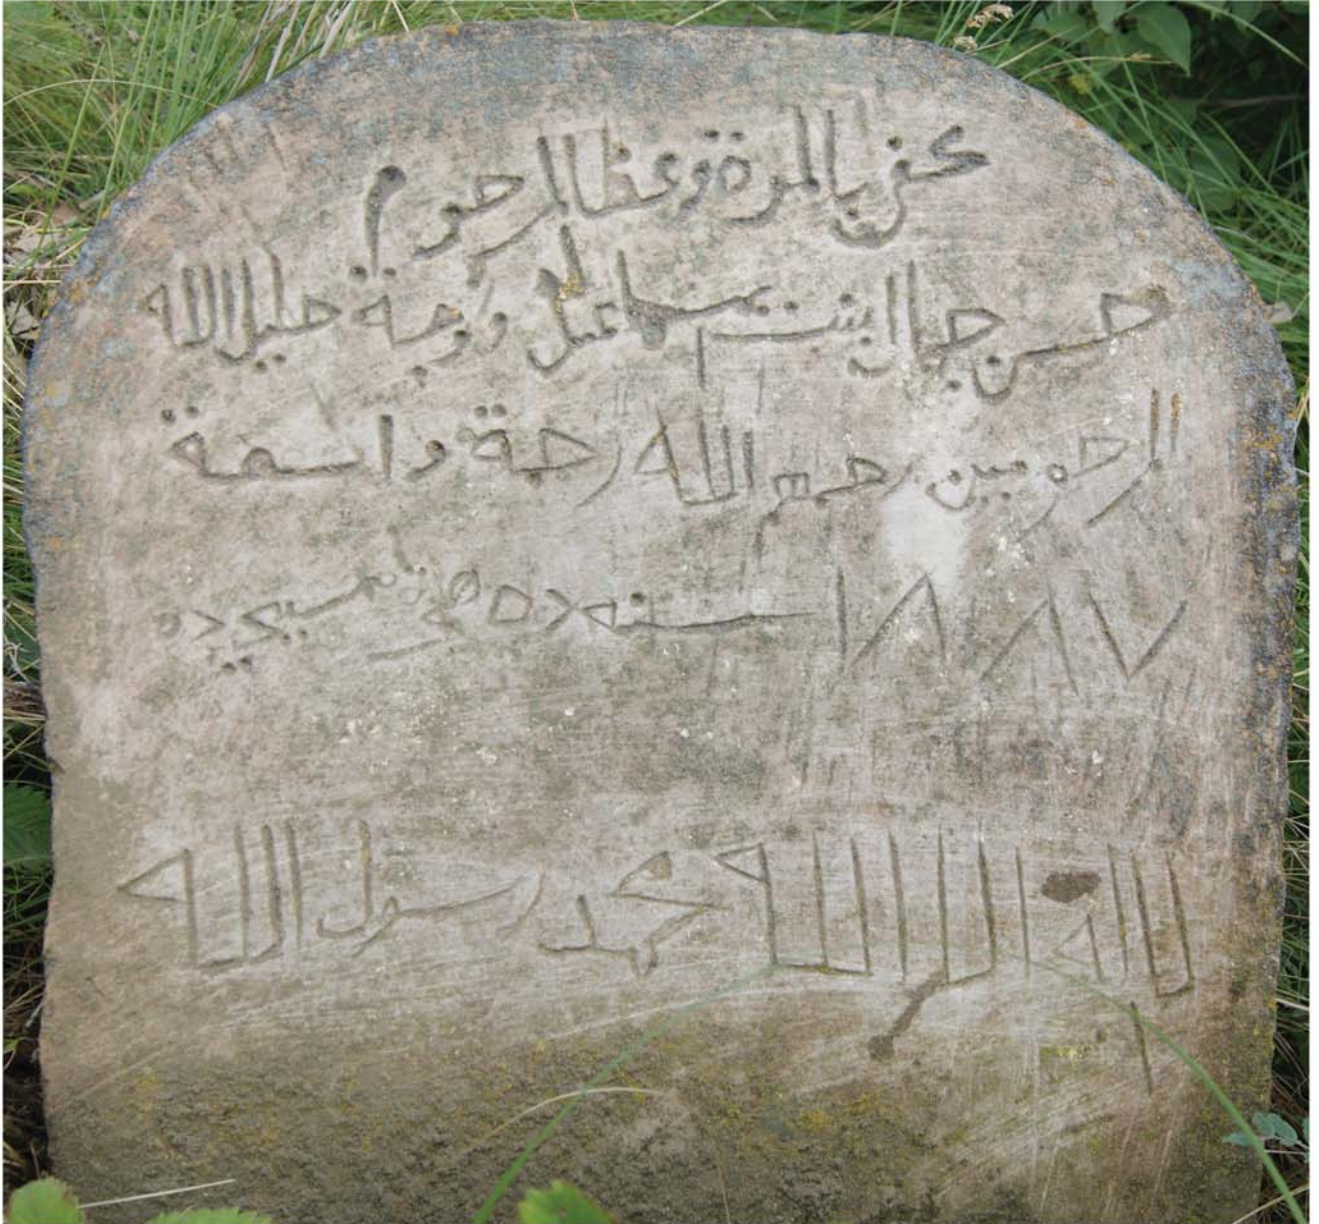 كفى بالمرة وعظا المرحوم
حسن جمال بنت اسماعيل زوجة خليل الله
المرحومين رحمهم الله رحمة واسعة
١٨٨٧ سنه ده
لا اله الا الله محمد رسول الله